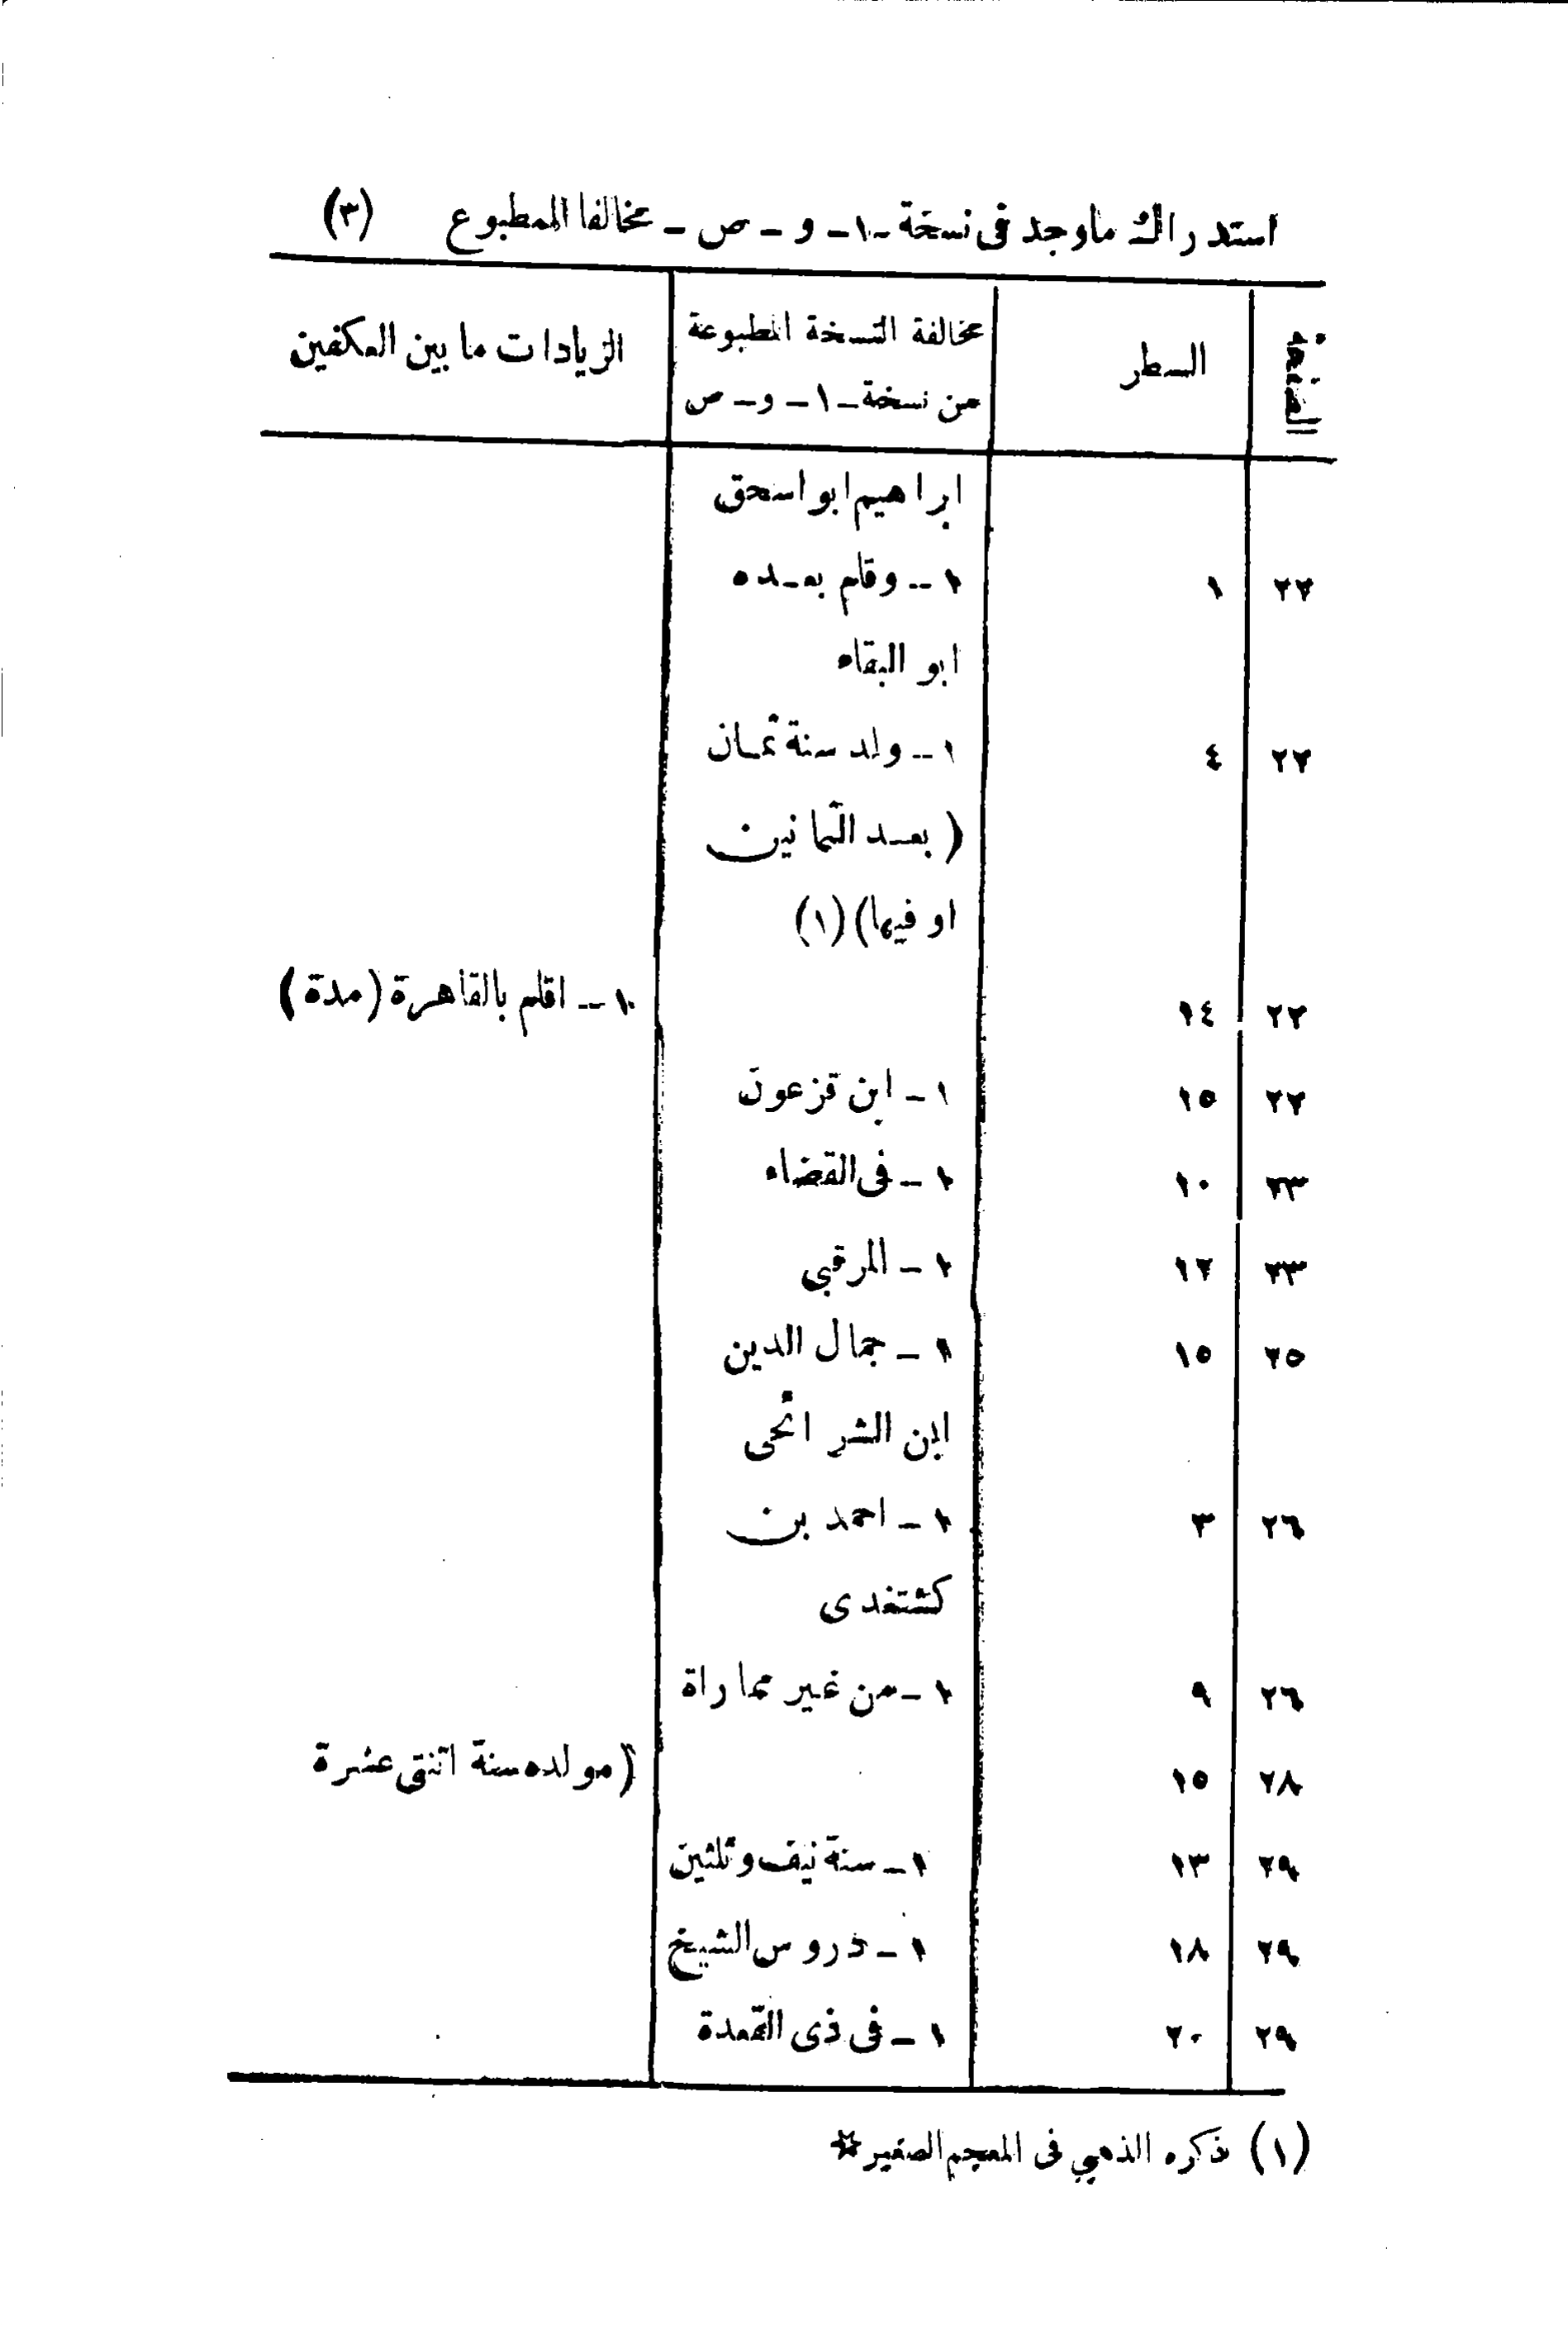 استدراك ماوجد فى نسخة -١- و - ص - مخالفا للمطبوع (٣)
الصفحة السطر مخالفة النسخة المطبوعة الزيادات ما بين العكفين
من نسخة - ١ - و - ص
ابراهيم ابو اسحق
٢٢ ١ ١ - وقام بعده
ابو البقاء
٢٢ ٤ ١ - ولد سنة ثمان
( بعد الثمانين
او فيها) (١)
٢٢ ١٤ ١ - اقام بالقاهرة (مدة)
٢٢ ١٥ ١ - ابن قزعون
٢٣ ١٠ ١ - فى القضاء
٢٣ ١٢ ١ - المرقبى
٢٥ ١٥ ١ - جمال الدين
ابن الشرائحى
٢٦ ٣ ١ - احمد بن
كشتغدى
٢٦ ٩ ١ - من غير مماراة
٢٨ ١٥ (مولده سنة اثنتى عشرة
٢٩ ١٣ ١ - سنة نيف وثلثين
٢٩ ١٨ ١ - دروس الشيخ
٢٩ ٢٠ ١ - فى ذى القعدة
(١) ذكره الذهبى فى المعجم الصغير *